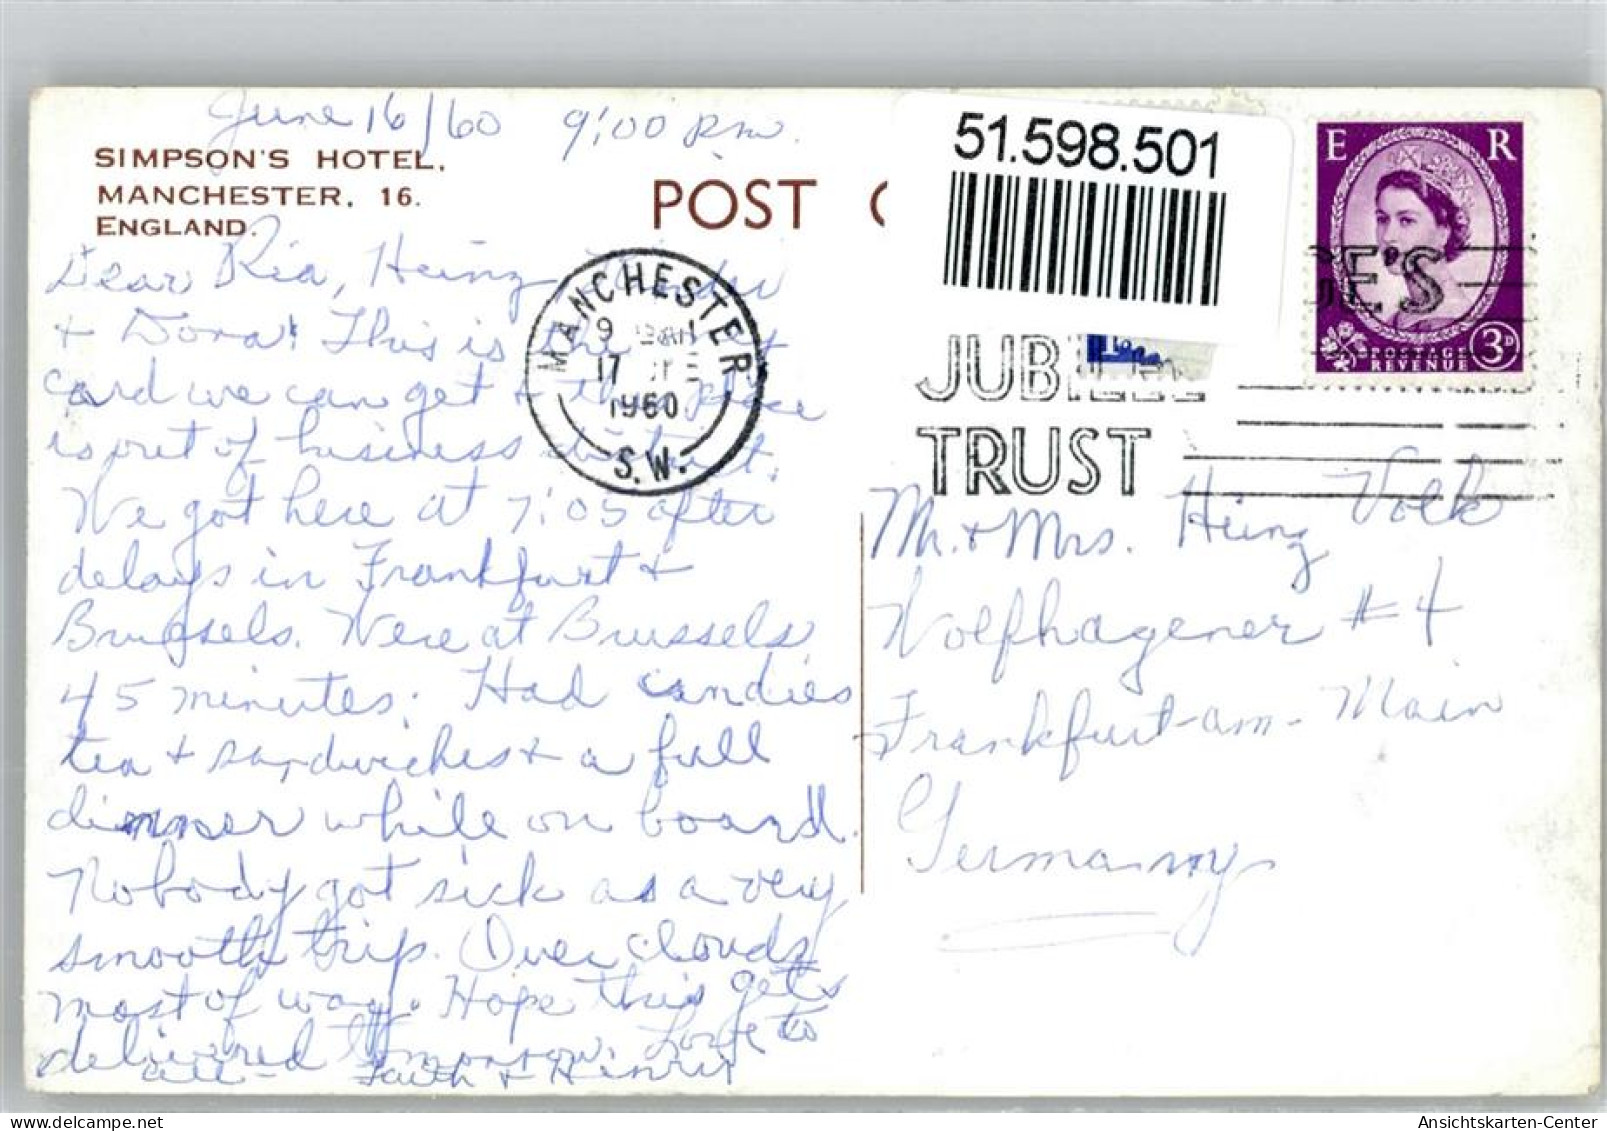 June 16/60 9:00 pm.
SIMPSON'S HOTEL,
MANCHESTER, 16.
ENGLAND.
POST C
51.598.501
E R
3D
POSTAGE
REVENUE
MANCHESTER
9
17
1960
S.W.
JUBILEE
TRUST
Dear Ria, Heinz
+ Dora! This is the
card we can get + this place
is out of business district.
We got here at 7:05 after
delays in Frankfurt +
Brussels. Were at Brussels
45 minutes. Had candies
tea + sandwiches + a full
dinner while on board.
Nobody got sick as a very
smooth trip. Over clouds
most of way. Hope this gets
delivered tomorrow. Love to
all - Faith + Henry
Mr. + Mrs. Heinz Volk
Wolfhagener # 4
Frankfurt-am-Main
Germany
Ansichtskarten-Center